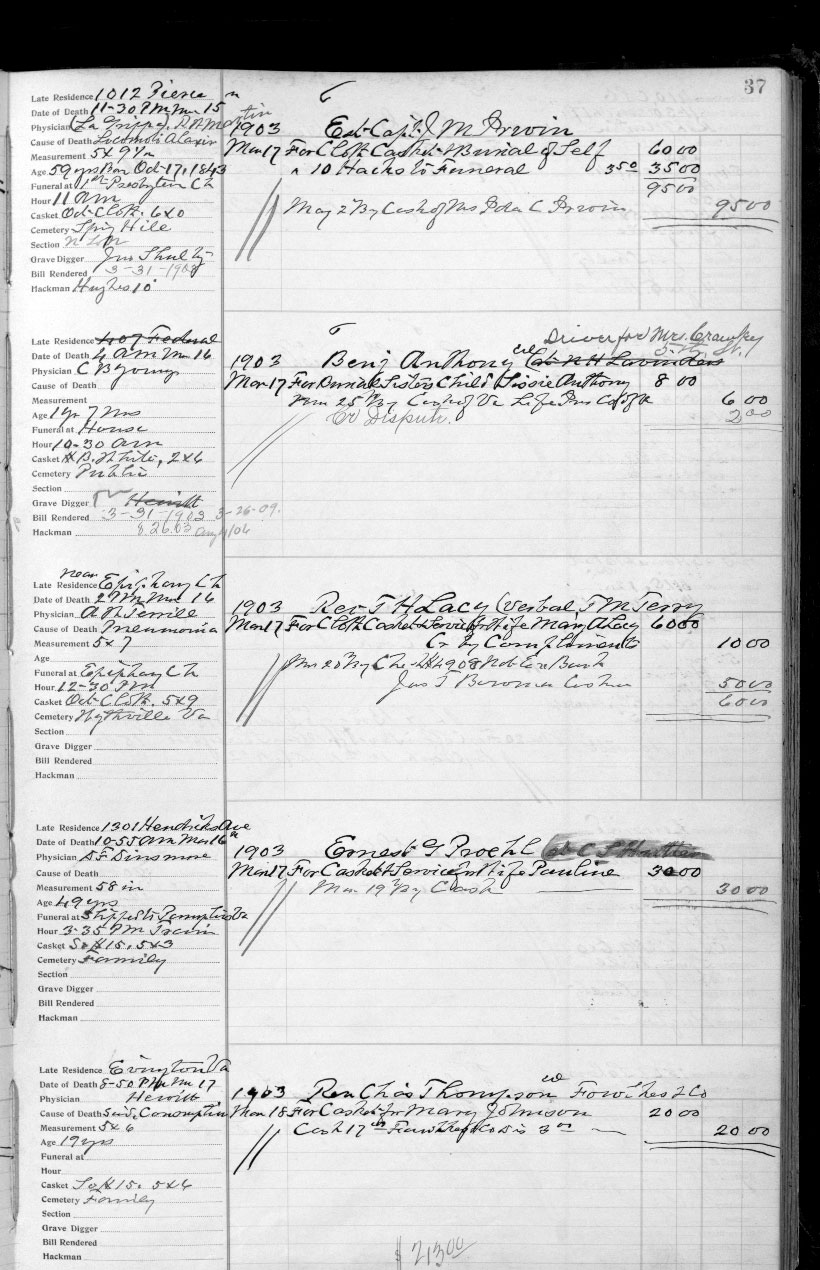 37
Late Residence 1012 Pierce
Date of Death 11-30 PM Mar 15
Physician (La Grippe)
Cause of Death Locomoto Ataxir
Measurement 5x9 1/2
Age 59 yrs Born Oct-17, 1843
Funeral at 1st Presbyten Ch
Hour 11 am
Casket Oct Cloth. 6x0
Cemetery Spg Hill
Section
Grave Digger Jno Shultz
Bill Rendered 3-31-1903
Hackman Hughes 10
1903 Est Capt J M Irwin
Mar 17 For Cloth Casket & Burial of Self 60 00
" 10 Hacks to Funeral 3 50 35 00
95 00
May 2 By Cash of Mrs Ida C Irwin 95 00
Late Residence 407 Federal
Date of Death 4 am Mar 16
Physician C B Young
Cause of Death
Measurement
Age 1 yr 7 Mos
Funeral at House
Hour 10-30 am
Casket White, 2x6
Cemetery Public
Section
Grave Digger Hewitt
Bill Rendered 3-31-1903 3-26-09.
Hackman 8.26.03 Aug 4/06
Driver for Mrs.
1903 Benj Anthony col
Mar 17 For Burial Sisters Child Lissie Anthony 8 00
Mar 25 By Cash of Va Life Ins Co 6 00
Cr Disputr. 2 00
near
Late Residence Epiphany Ch
Date of Death 2 PM Mar 16
Physician Terrill
Cause of Death Pneumonia
Measurement 5x7
Age
Funeral at Epiphany Ch
Hour 12-30 PM
Casket Oct Cloth. 5x9
Cemetery Wytheville Va
Section
Grave Digger
Bill Rendered
Hackman
1903 Rev T H Lacy (Verbal T M Terry
Mar 17 For Cloth Casket & Service for Wife Mary A Lacy 60 00
Cr by Compliments 10 00
By Che-
Jas T Bowman Cashr 50 00
60 00
Late Residence 1301 Hendricks Ave
Date of Death 10-55 am Mar 16th
Physician S F Dinsmore
Cause of Death
Measurement 58 in
Age 49 yrs
Funeral at Shipped to
Hour 3-35 PM Train
Casket 15. 5x3
Cemetery Family
Section
Grave Digger
Bill Rendered
Hackman
1903 Ernest G Proehl
Mar 17 For Casket & Service for Wife Pauline 30 00
Mar 19 By Cash 30 00
Late Residence Evington Va
Date of Death 8-50 PM Mar 17
Physician Hewitt
Cause of Death Consumption
Measurement 5x6
Age 19 yrs
Funeral at
Hour
Casket 15. 5x6
Cemetery Family
Section
Grave Digger
Bill Rendered
Hackman
1903 Rev Chas Thompson col
Mar 18 For Casket for Mary Johnson 20 00
Cash 17 3 00 20 00
$ 213 00